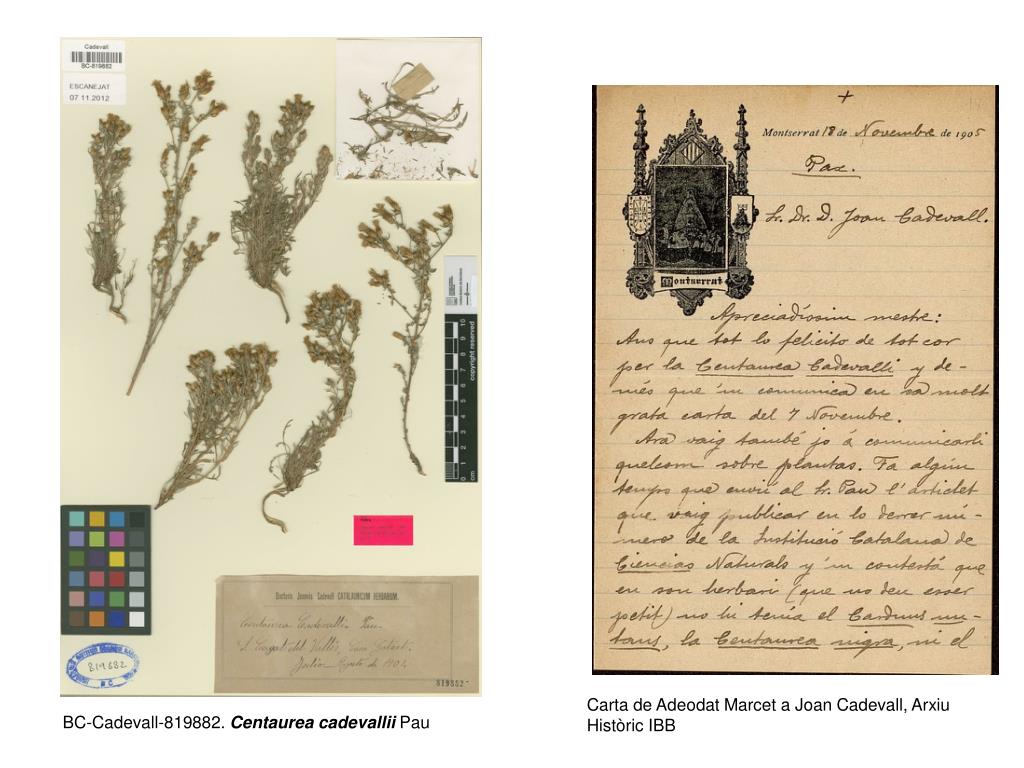 Cadevall
BC-819882
ESCANEJAT
07 11.2012
copyright reserved
cm
1 2 3 4 5 6 7 8 9 10
Doctoris Joannis Cadevall CATALAUNICUM HERBARIUM.
Centaurea Cadevallii Pau
S. Cugat del Vallès,
Julio Agosto de 190
819882
819882
B C
BC-Cadevall-819882. Centaurea cadevallii Pau
Montserrat 18 de Novembre de 1905
Pax.
Sr. Dr. D. Joan Cadevall.
Montserrat
Apreciadíssim mestre:
Ans que tot lo felicito de tot cor
per la Centaurea Cadevalli y de-
més que 'm comunica en sa molt
grata carta del 7 Novembre.
Ara vaig també jo á comunicarli
quelcom sobre plantas. Fa algún
temps que envií al Sr. Pau l'articlet
que vaig publicar en lo derrer nú-
mero de la Institució Catalana de
Ciencias Naturals y 'm contestá que
en son herbari (que no deu esser
petit) no hi tenía el Carduus nu-
tans, la Centaurea nigra, ni el
Carta de Adeodat Marcet a Joan Cadevall, Arxiu
Històric IBB